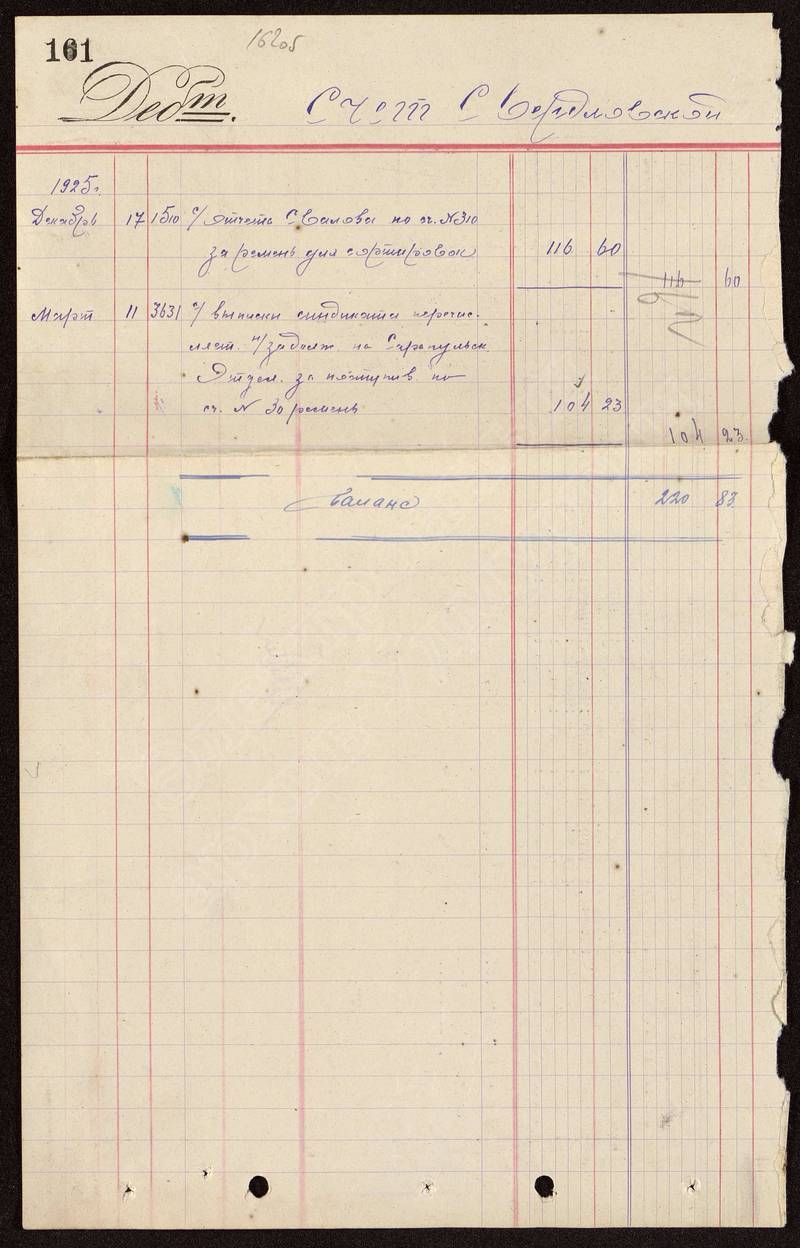 161
Дебт. Счет Свердловской
1925г.
Декабрь 17 1510 с/ отчета Свалова по сч. N310
за ремень для сортировок 116 60
116 60
Март 11 3631 с/ выписки синдиката перечис-
ляет н/задолж. на Сарапульск.
Отдел. за поступив. по
сч. N 30 ремень 104 23
104 23
Баланс 220 83